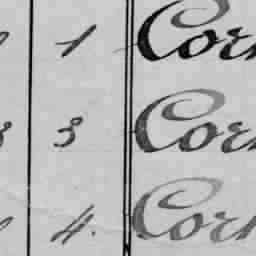 1 Cor
3 Cor
4. Cor